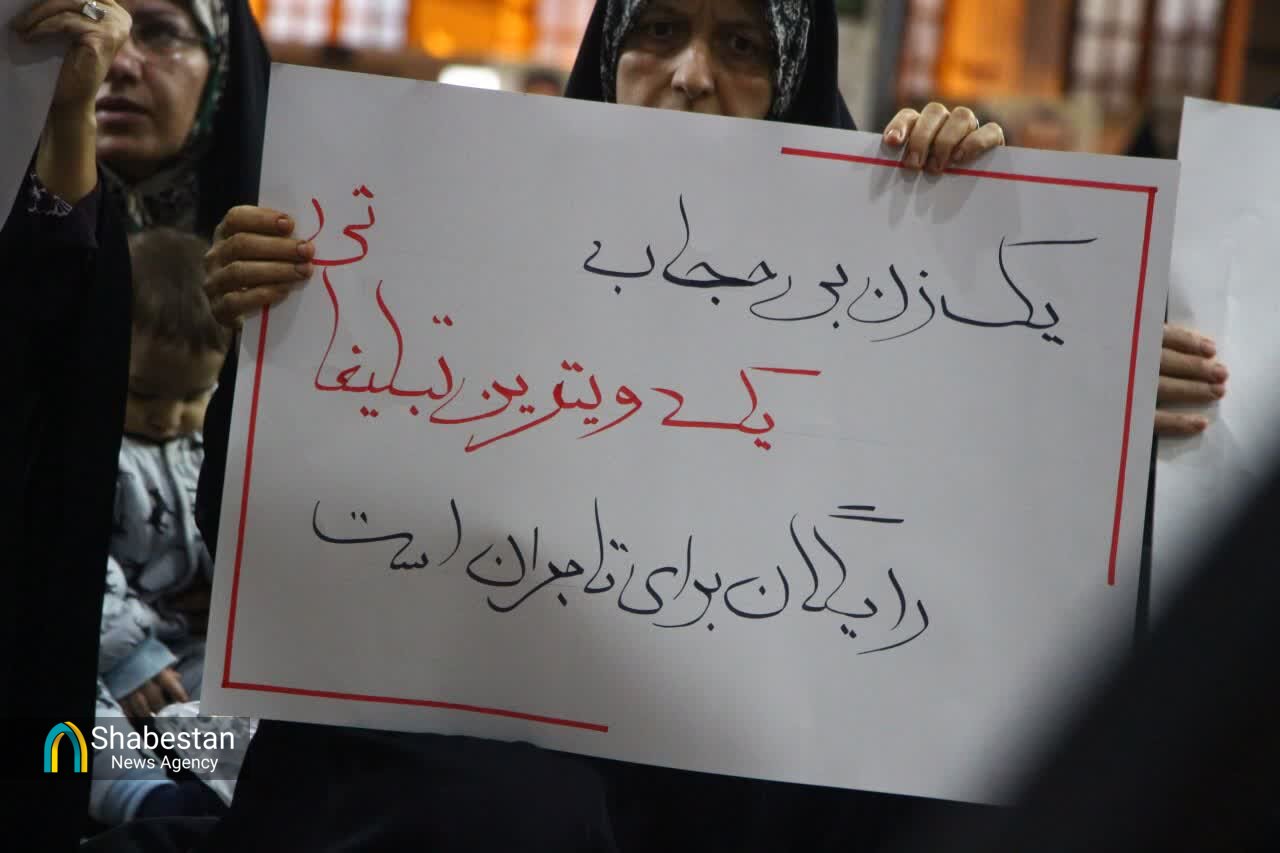 یک زن بی حجاب
یک ویترین تبلیغاتی
رایگان برای تاجران است
Shabestan
News Agency